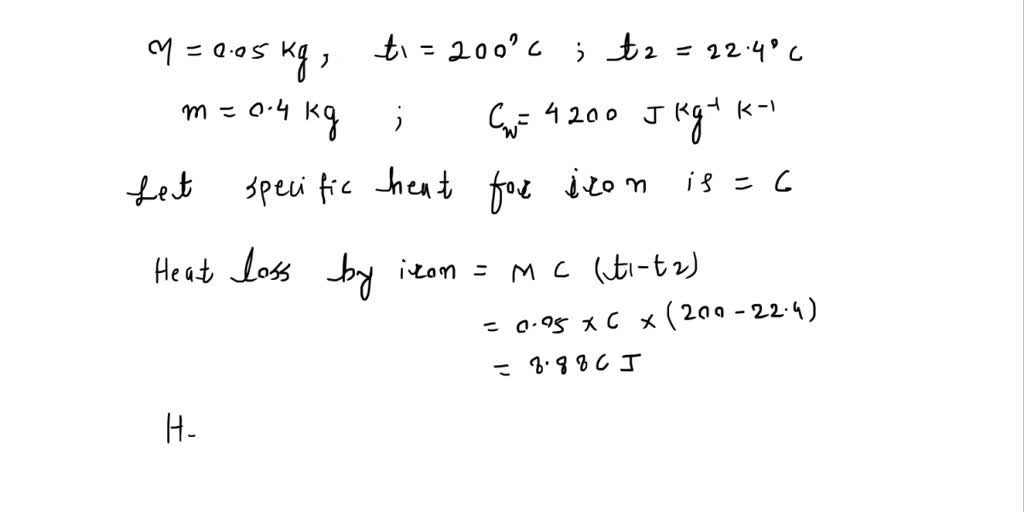 M = 0.05 kg, t1 = 200°C ; t2 = 22.4°C
m = 0.4 kg ; Cw = 4200 J kg⁻¹ K⁻¹
Let specific heat for iron is = C
Heat loss by iron = M C (t1-t2)
= 0.05 × C × (200 - 22.4)
= 8.88 C J
H-